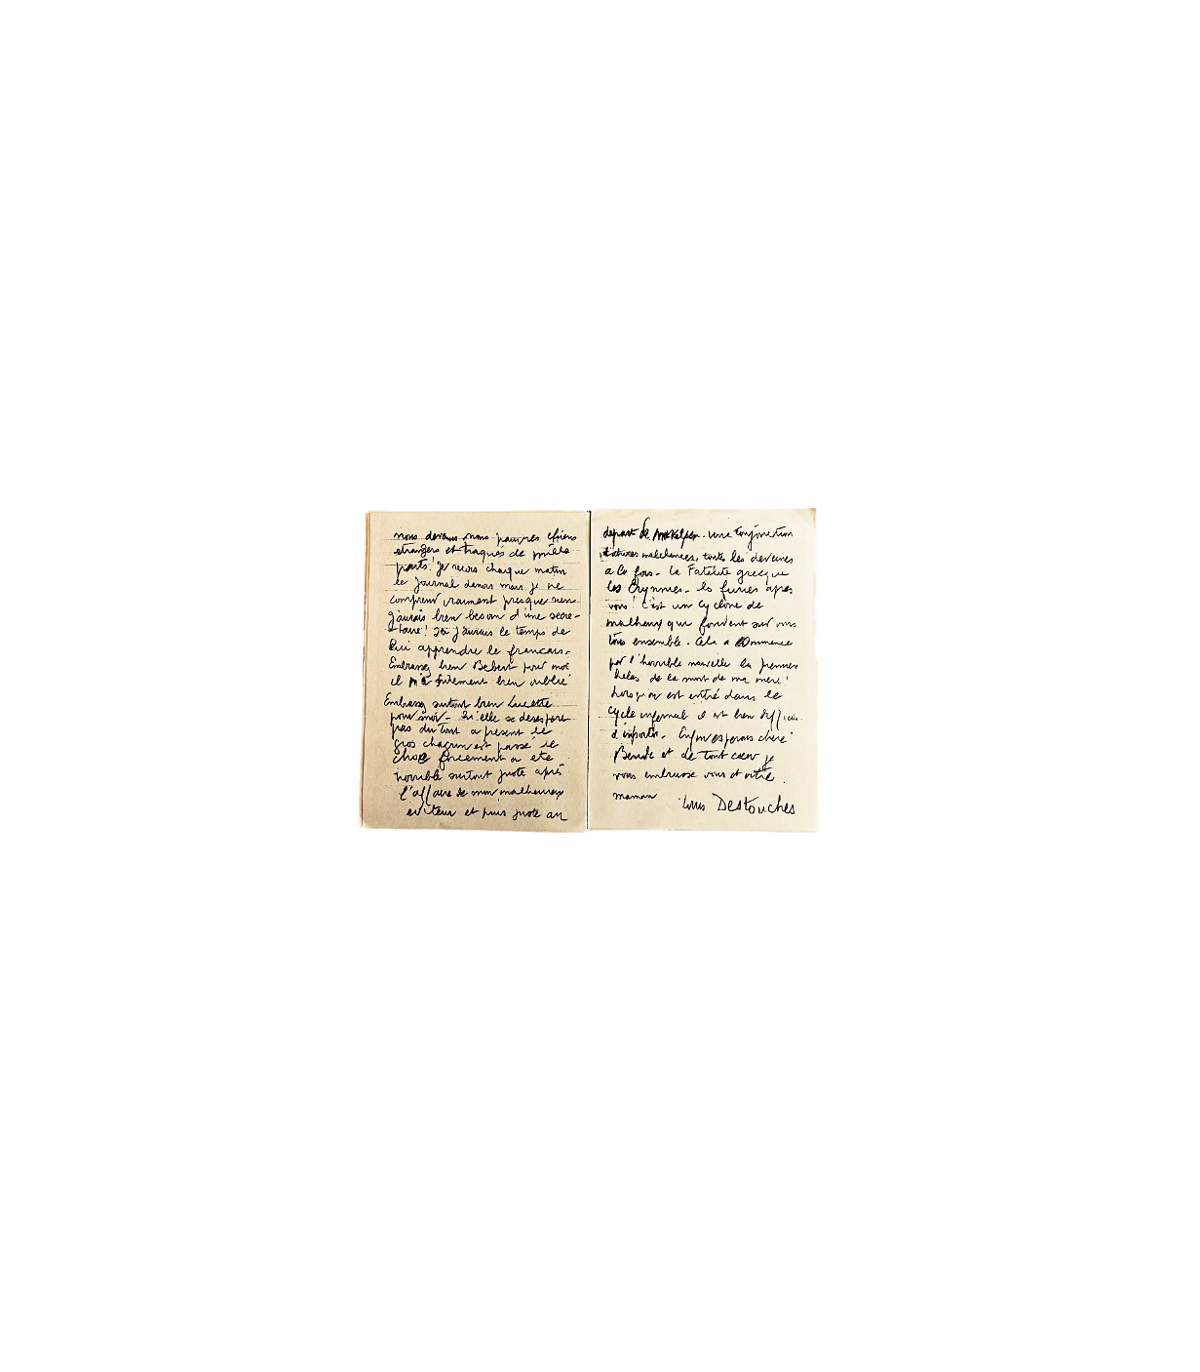 nous devenus nous pauvres chiens
etrangers et traqués de mille
parts! Je recois chaque matin
le journal danois mais je ne
comprend vraiment presque rien
J'aurais bien besoin d'une secre-
-taire! Ici j'aurais le temps de
lui apprendre le francais.
Embrassez bien Bebert pour moi
il m'a surement bien oublié
Embrassez surtout bien Lucette
pour moi. Qu'elle se desespere
pas du tout a present le
gros chagrin est passé le
choc forcement a ete
horrible surtout juste après
l'affaire de mon malheureux
editeur et puis juste au
depart de une conjonction
d'atroces malchances, toutes les deveines
a la fois. la Fatalité grecque
les Erynnies. les furies apres
vous! C'est un cyclone de
malheurs qui fondent sur vous
tous ensemble. Cela a commence
par l'horrible nouvelle la premiere
helas de la mort de ma mere!
Lorsqu'on est entré dans le
cycle infernal il est bien difficile
d'en sortir. Enfin esperons chere
Bende et de tout cœur je
vous embrasse vous et votre
maman Louis Destouches